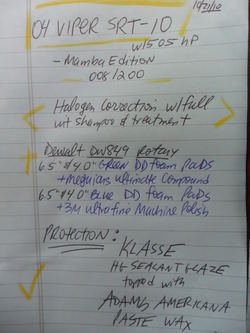 10/21/10
04 VIPER SRT-10
w/505 hp
- Mamba Edition
008/200
Halogen Correction w/full
int shampoo & treatment
Dewalt DW849 Rotary
6.5" & 4.0" Green DD foam Pads
+ Meguiars Ultimate Compound
6.5" & 4.0" Blue DD foam Pads
+ 3M Ultrafine Machine Polish
PROTECTION:
KLASSE
HG SEALANT GLAZE
topped with
ADAMS AMERICANA
PASTE WAX